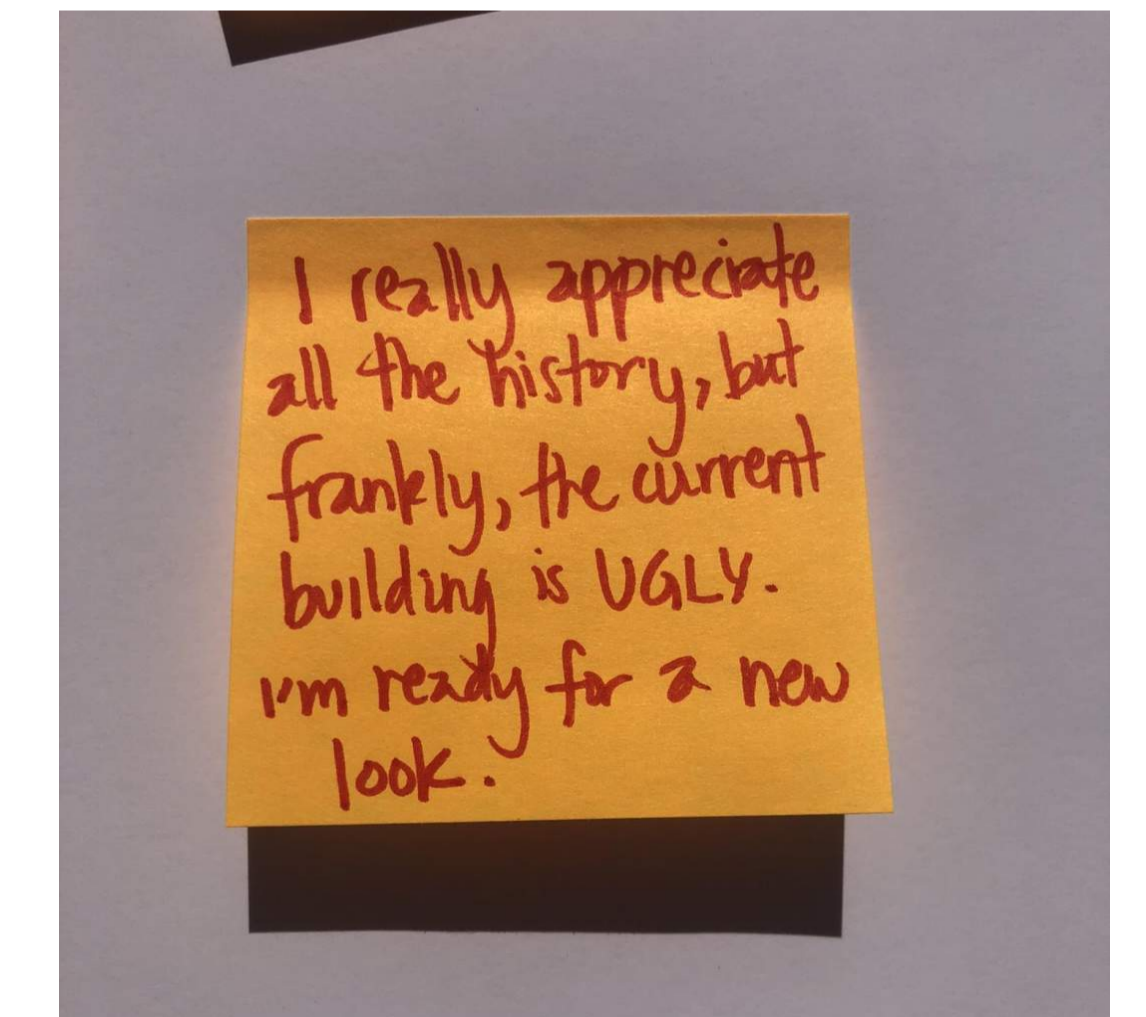 I really appreciate
all the history, but
frankly, the current
building is UGLY.
I'm ready for a new
look.